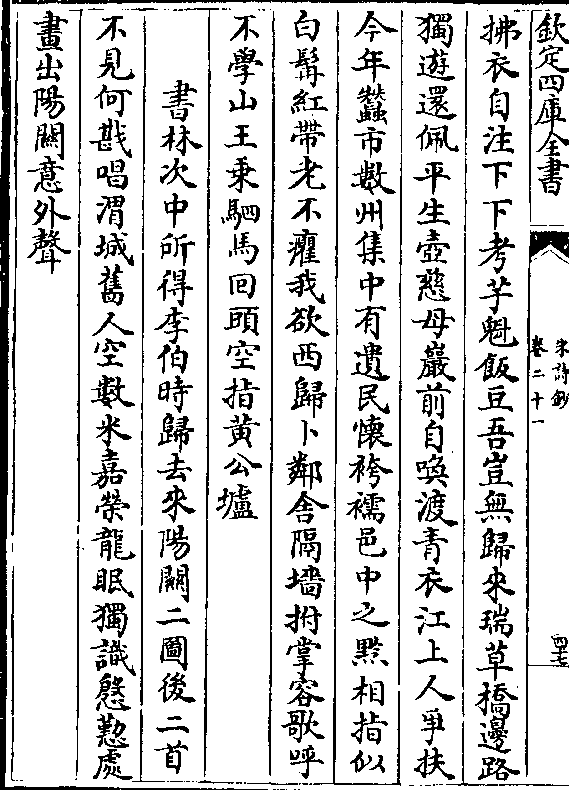 欽定四庫全書
宋詩鈔
卷二十一
四七
拂衣自注下下考芋魁飯豆吾豈無歸來瑞草橋邊路
獨遊還佩平生壺慈母巖前自喚渡青衣江上人爭扶
今年蠶市數州集中有遺民懷袴襦邑中之黔相指似
白髯紅帶老不癯我欲西歸卜鄰舍隔墻拊掌容歌呼
不學山王乘駟馬回頭空指黃公壚
書林次中所得李伯時歸去來陽關二圖後二首
不見何戡唱渭城舊人空數米嘉榮龍眠獨識慇懃處
畫出陽關意外聲